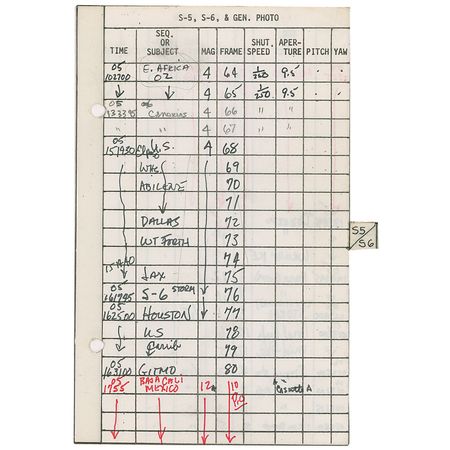 S-5, S-6, & GEN. PHOTO
TIME SEQ. OR SUBJECT MAG FRAME SHUT. SPEED APER- TURE PITCH YAW
05 102700 E. AFRICA 02 4 64 1/250 9.5
4 65 1/250 9.5
05 Canarias 4 66 " "
" " 4 67 " "
05 U.S. 4 68
69
ABILENE 70
71
DALLAS 72
WT FORTH 73
74
JAX 75
05 161745 S-6 STORM 76
05 162500 HOUSTON 77
US 78
Carrib 79
05 163100 GITMO 80
05 1755 BAJA CALI MEXICO 12 10
S5
S6